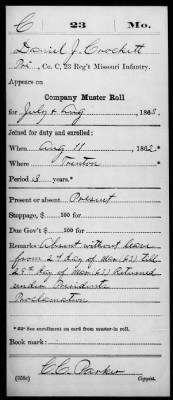 C 23 Mo.
Daniel J. Crockett
Pvt, Co. C, 23 Reg't Missouri Infantry.
Appears on
Company Muster Roll
for July & Aug, 1863.
Joined for duty and enrolled:
When Aug 11, 1862.*
Where Trenton
Period 3 years.*
Present or absent Present
Stoppage, $ 100 for
Due Gov't $ 100 for
Remarks: Absent without leave
from 2d day of Mar (63) till
29th day of Mar (63) Returned
under Presidents
Proclamation
*See enrollment on card from muster-in roll.
Book mark:
C.C. Parker
(358c) Copyist.